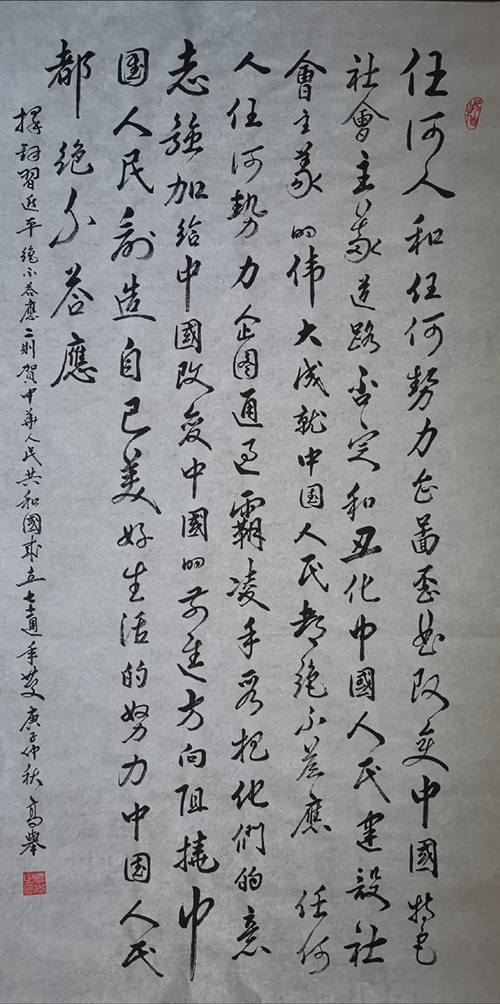 任何人和任何勢力企圖歪曲改变中國特色
社會主義道路否定和丑化中國人民建設社
會主義的伟大成就中国人民都绝不荅應 任何
人任何勢力企图通过霸凌手段把他們的意
志強加给中國改变中國的前進方向阻撓中
国人民創造自己美好生活的努力中国人民
都绝不荅應
擇録習近平绝不荅應二則賀中华人民共和國成立七十一週年 庚子仲秋 高舉